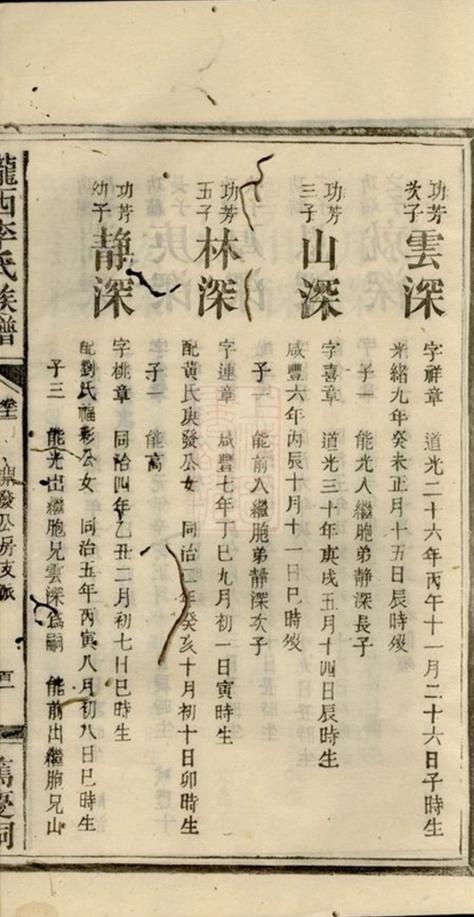 功芳次子
雲深
字祥章　道光二十六年丙午十一月二十六日子時生
光緒九年癸未正月十五日辰時歿
子一　能光入繼胞弟靜深長子
功芳三子
山深
字喜章　道光三十年庚戌五月十四日辰時生
咸豐六年丙辰十月十一日巳時歿
子一　能前入繼胞弟靜深次子
功芳五子
林深
字連章　咸豐七年丁巳九月初一日寅時生
配黃氏庚發公女　同治二年癸亥十月初十日卯時生
子一　能高
功芳幼子
靜深
字桃章　同治四年乙丑二月初七日巳時生
配劉氏福彩公女　同治五年丙寅八月初八日巳時生
子三　能光出繼胞兄雲深為嗣　能前出繼胞兄山
隴西李氏族譜
發公房支派
萬慶祠